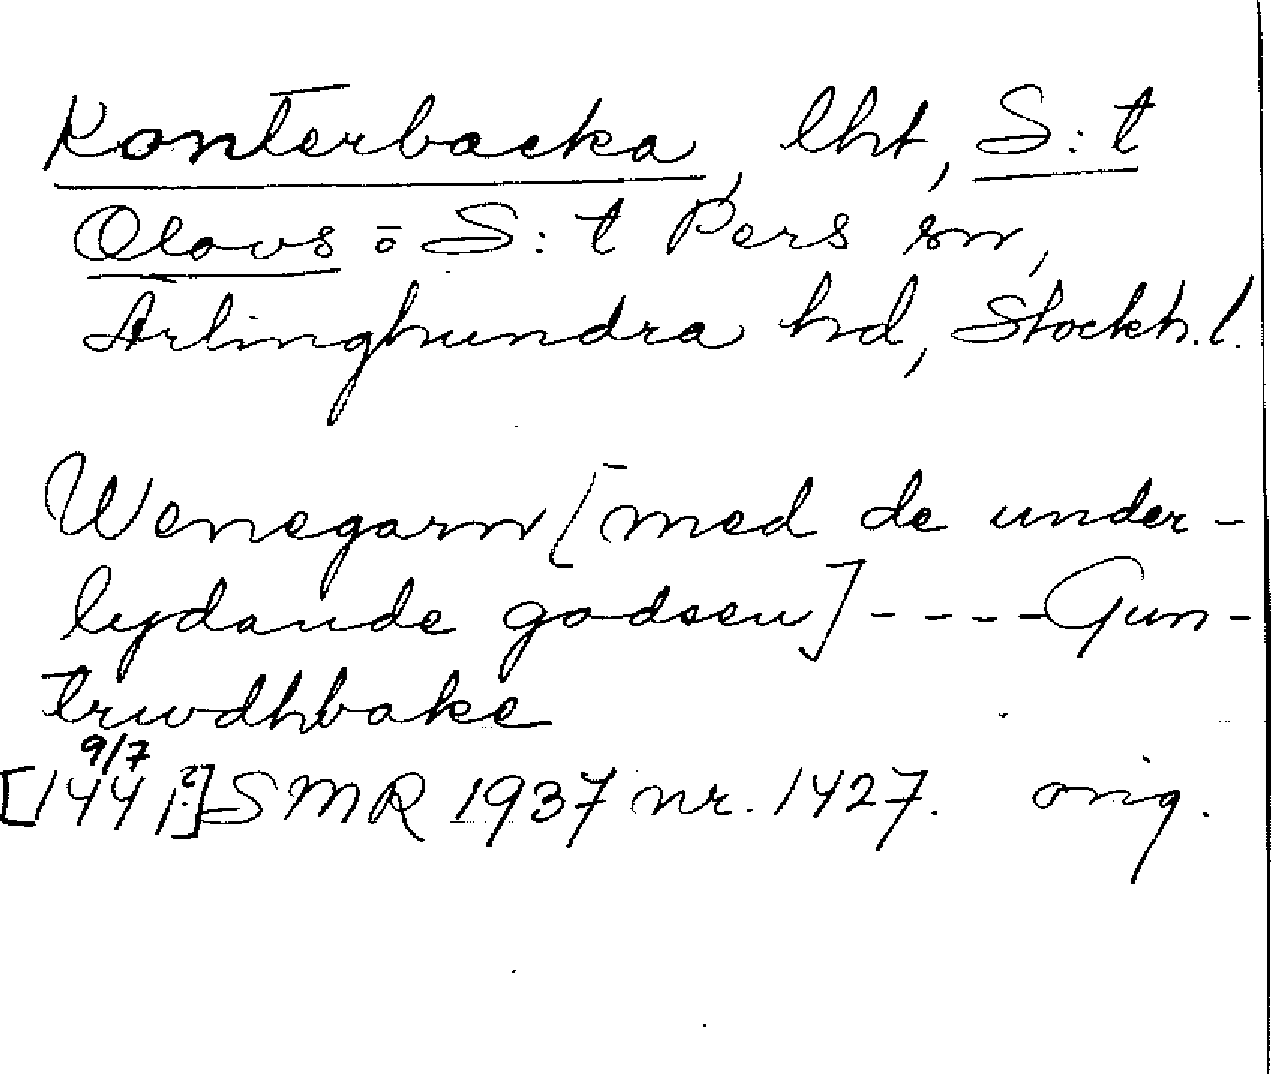 Konterbacka, lht, S:t
Olovs o S:t Pers sn,
Ärlinghundra hd, Stockh.l.
Wenegarn [med de under-
lydande godsen] - - - - Gun-
trwdhbake
9/7
[1441?] SMR 1937 nr. 1427. orig.